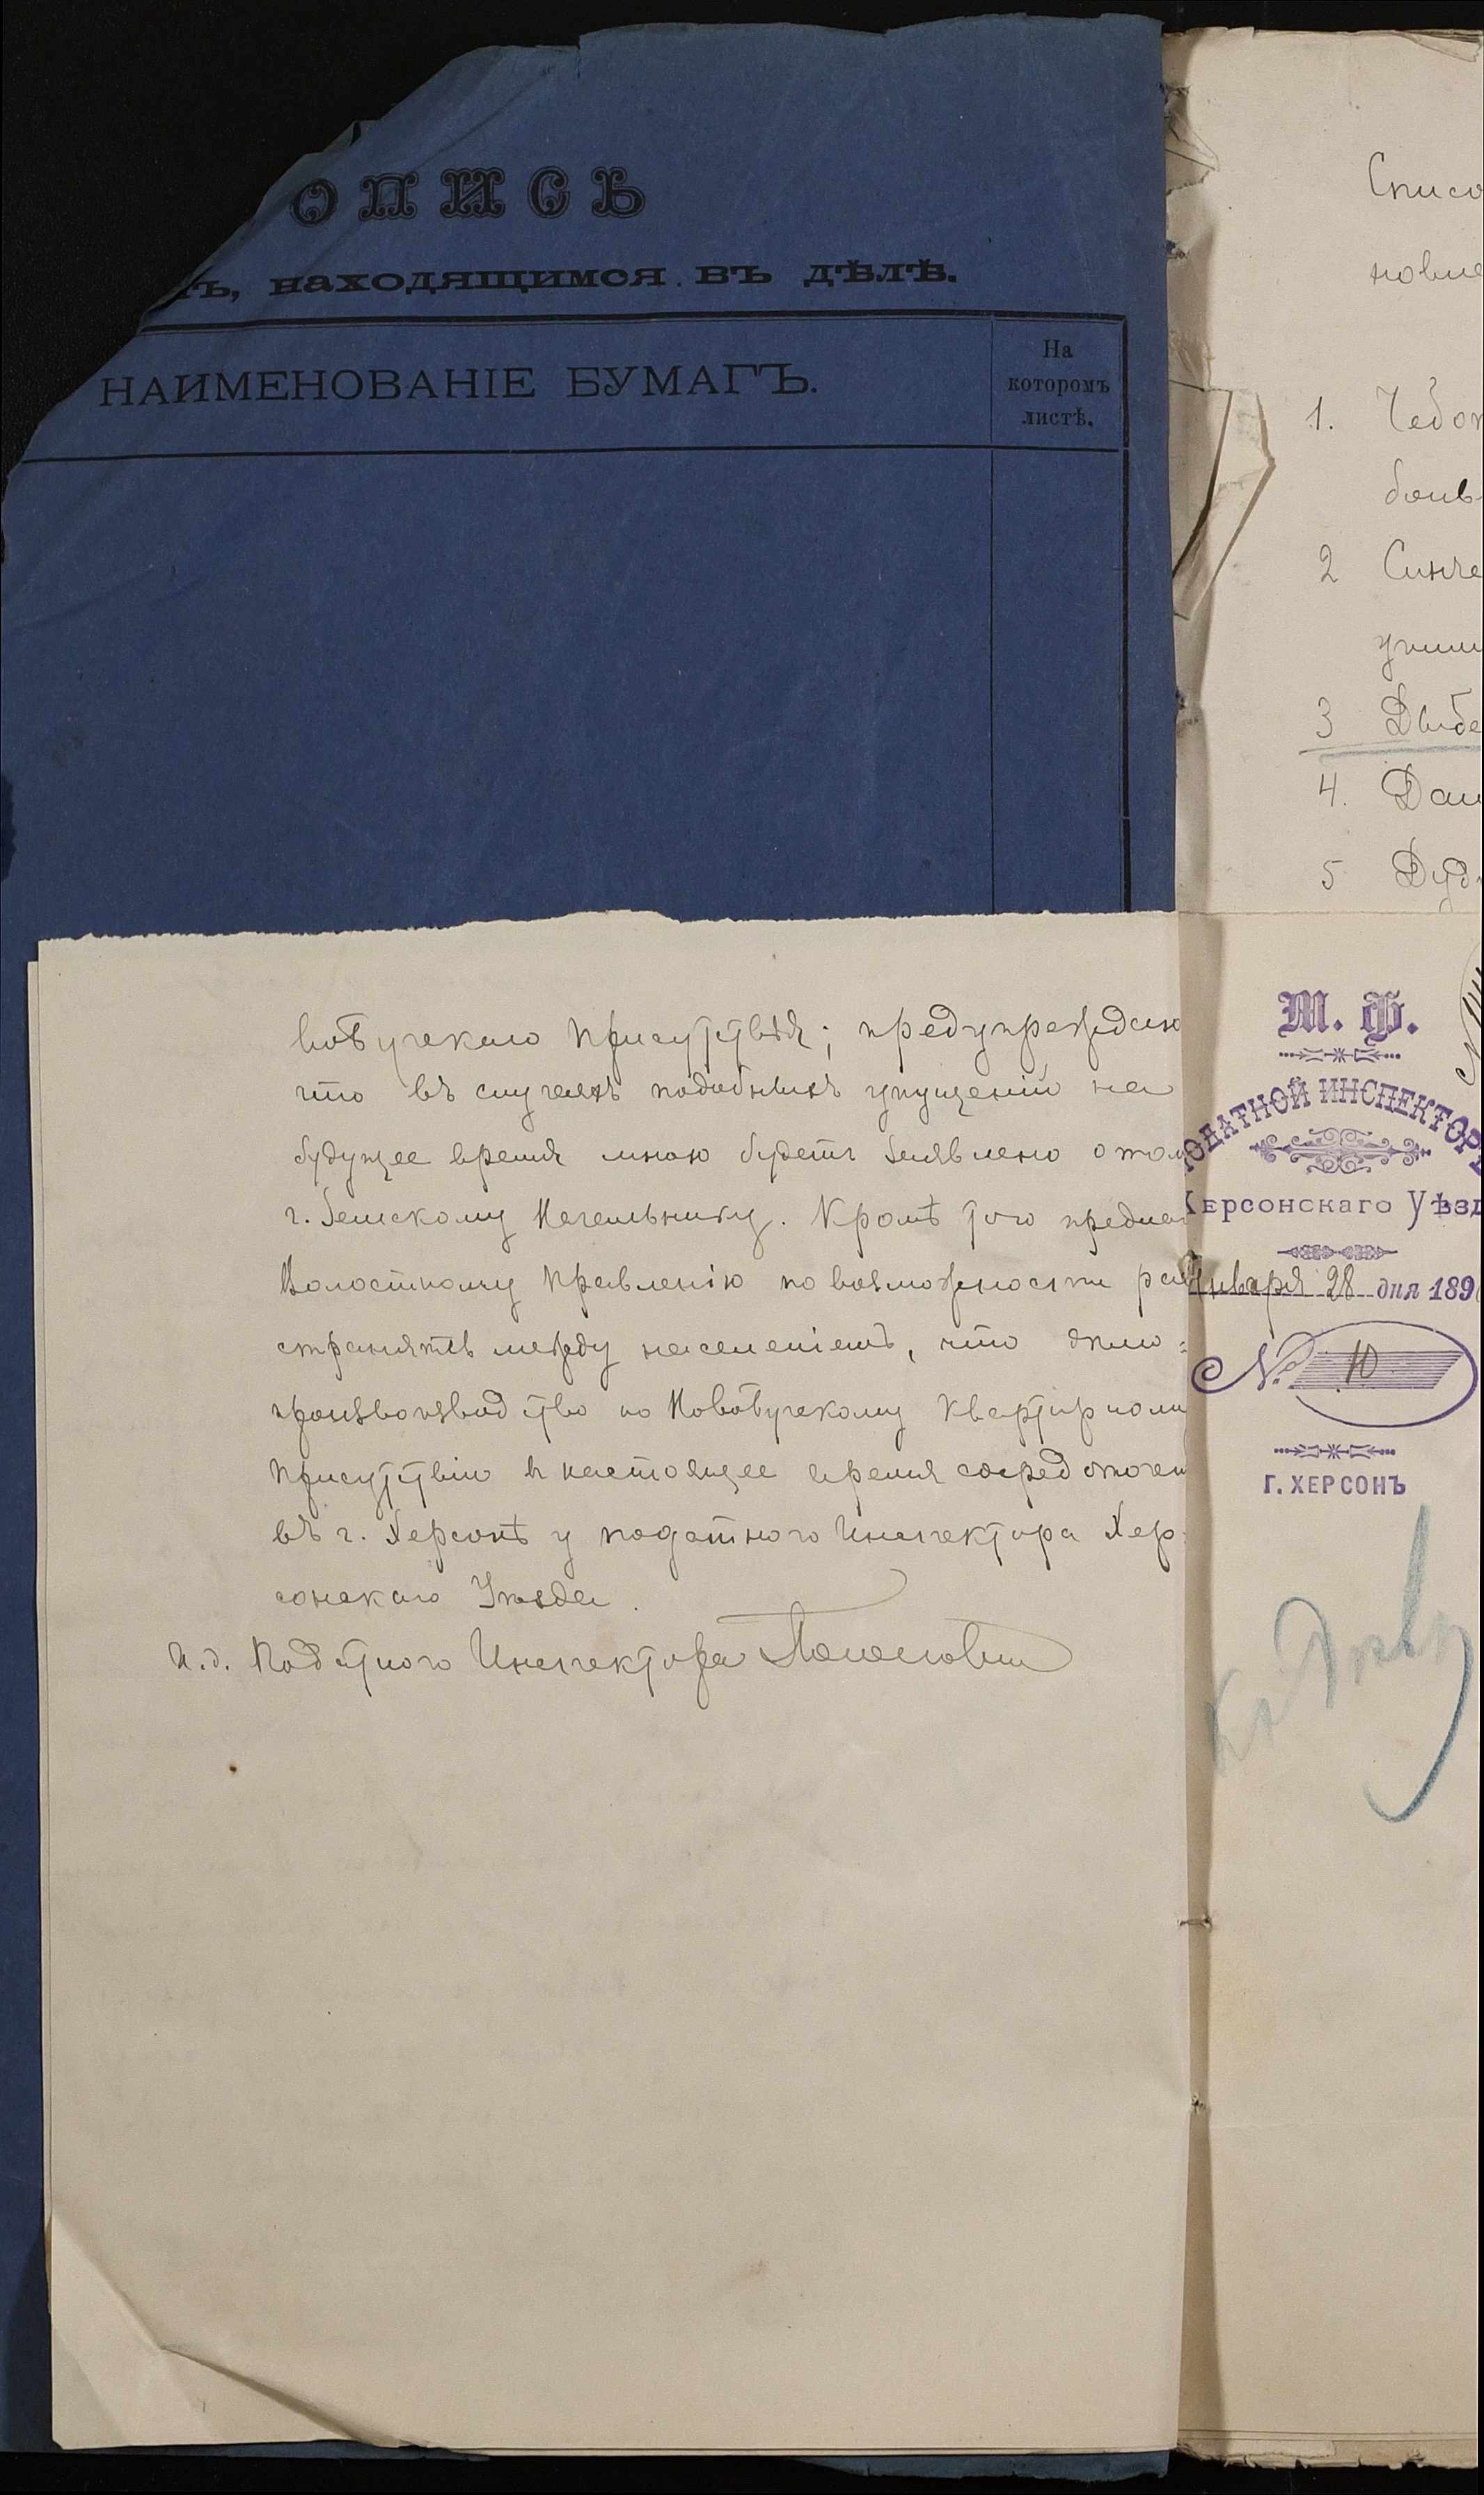 ОПИСЬ
ъ, находящимся въ дѣлѣ.
НАИМЕНОВАНІЕ БУМАГЪ.
На
которомъ
листѣ.
вобугскаго Присутствія; предупреждаю
что въ случаяхъ подобныхъ упущеній на
будущее время мною будетъ заявлено о том
г. Земскому Начальнику. Кромѣ того предла
Волостному Правленію по возможности рас
странять между населеніемъ, что дѣло=
производство по Новобугскому Квартирному
Присутствію в настоящее время сосредоточен
въ г. Херсонѣ у податного Инспектора Хер-
сонскаго Уѣзда.
И.д. Податного Инспектора
Списо
новле
1. Чебот
2 Синче
3 Дыбе
4. Дани
5 Дуд
М. Ф.
ПОДАТНОЙ ИНСПЕКТОРЪ
Херсонскаго Уѣзд
Января 28 дня 189
№ 10
Г. ХЕРСОНЪ
Къ дѣлу